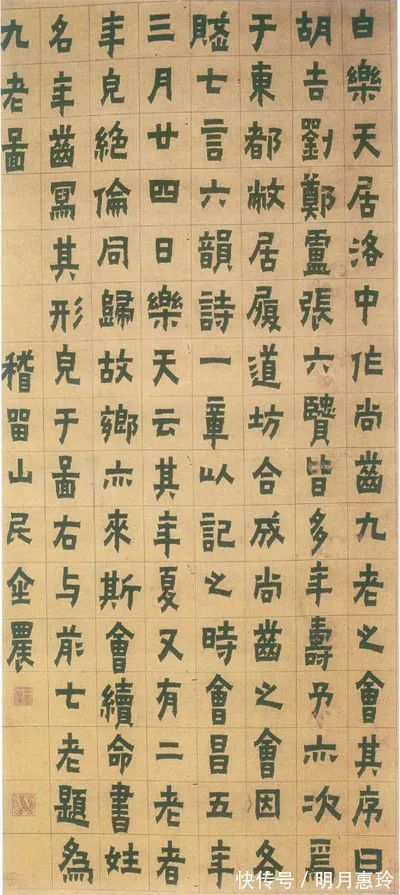 白樂天居洛中作尚齒九老之會其序曰
胡吉劉鄭盧張六賢皆多年壽予亦次焉
于東都敝居履道坊合成尚齒之會因各
賦七言六韻詩一章以記之時會昌五年
三月廿四日樂天云其年夏又有二老者
年皃絕倫同歸故鄉亦來斯會續命書姓
名年齒寫其形皃于啚右与前七老題為
九老啚 稽留山民金農
快传号/明月惠玲